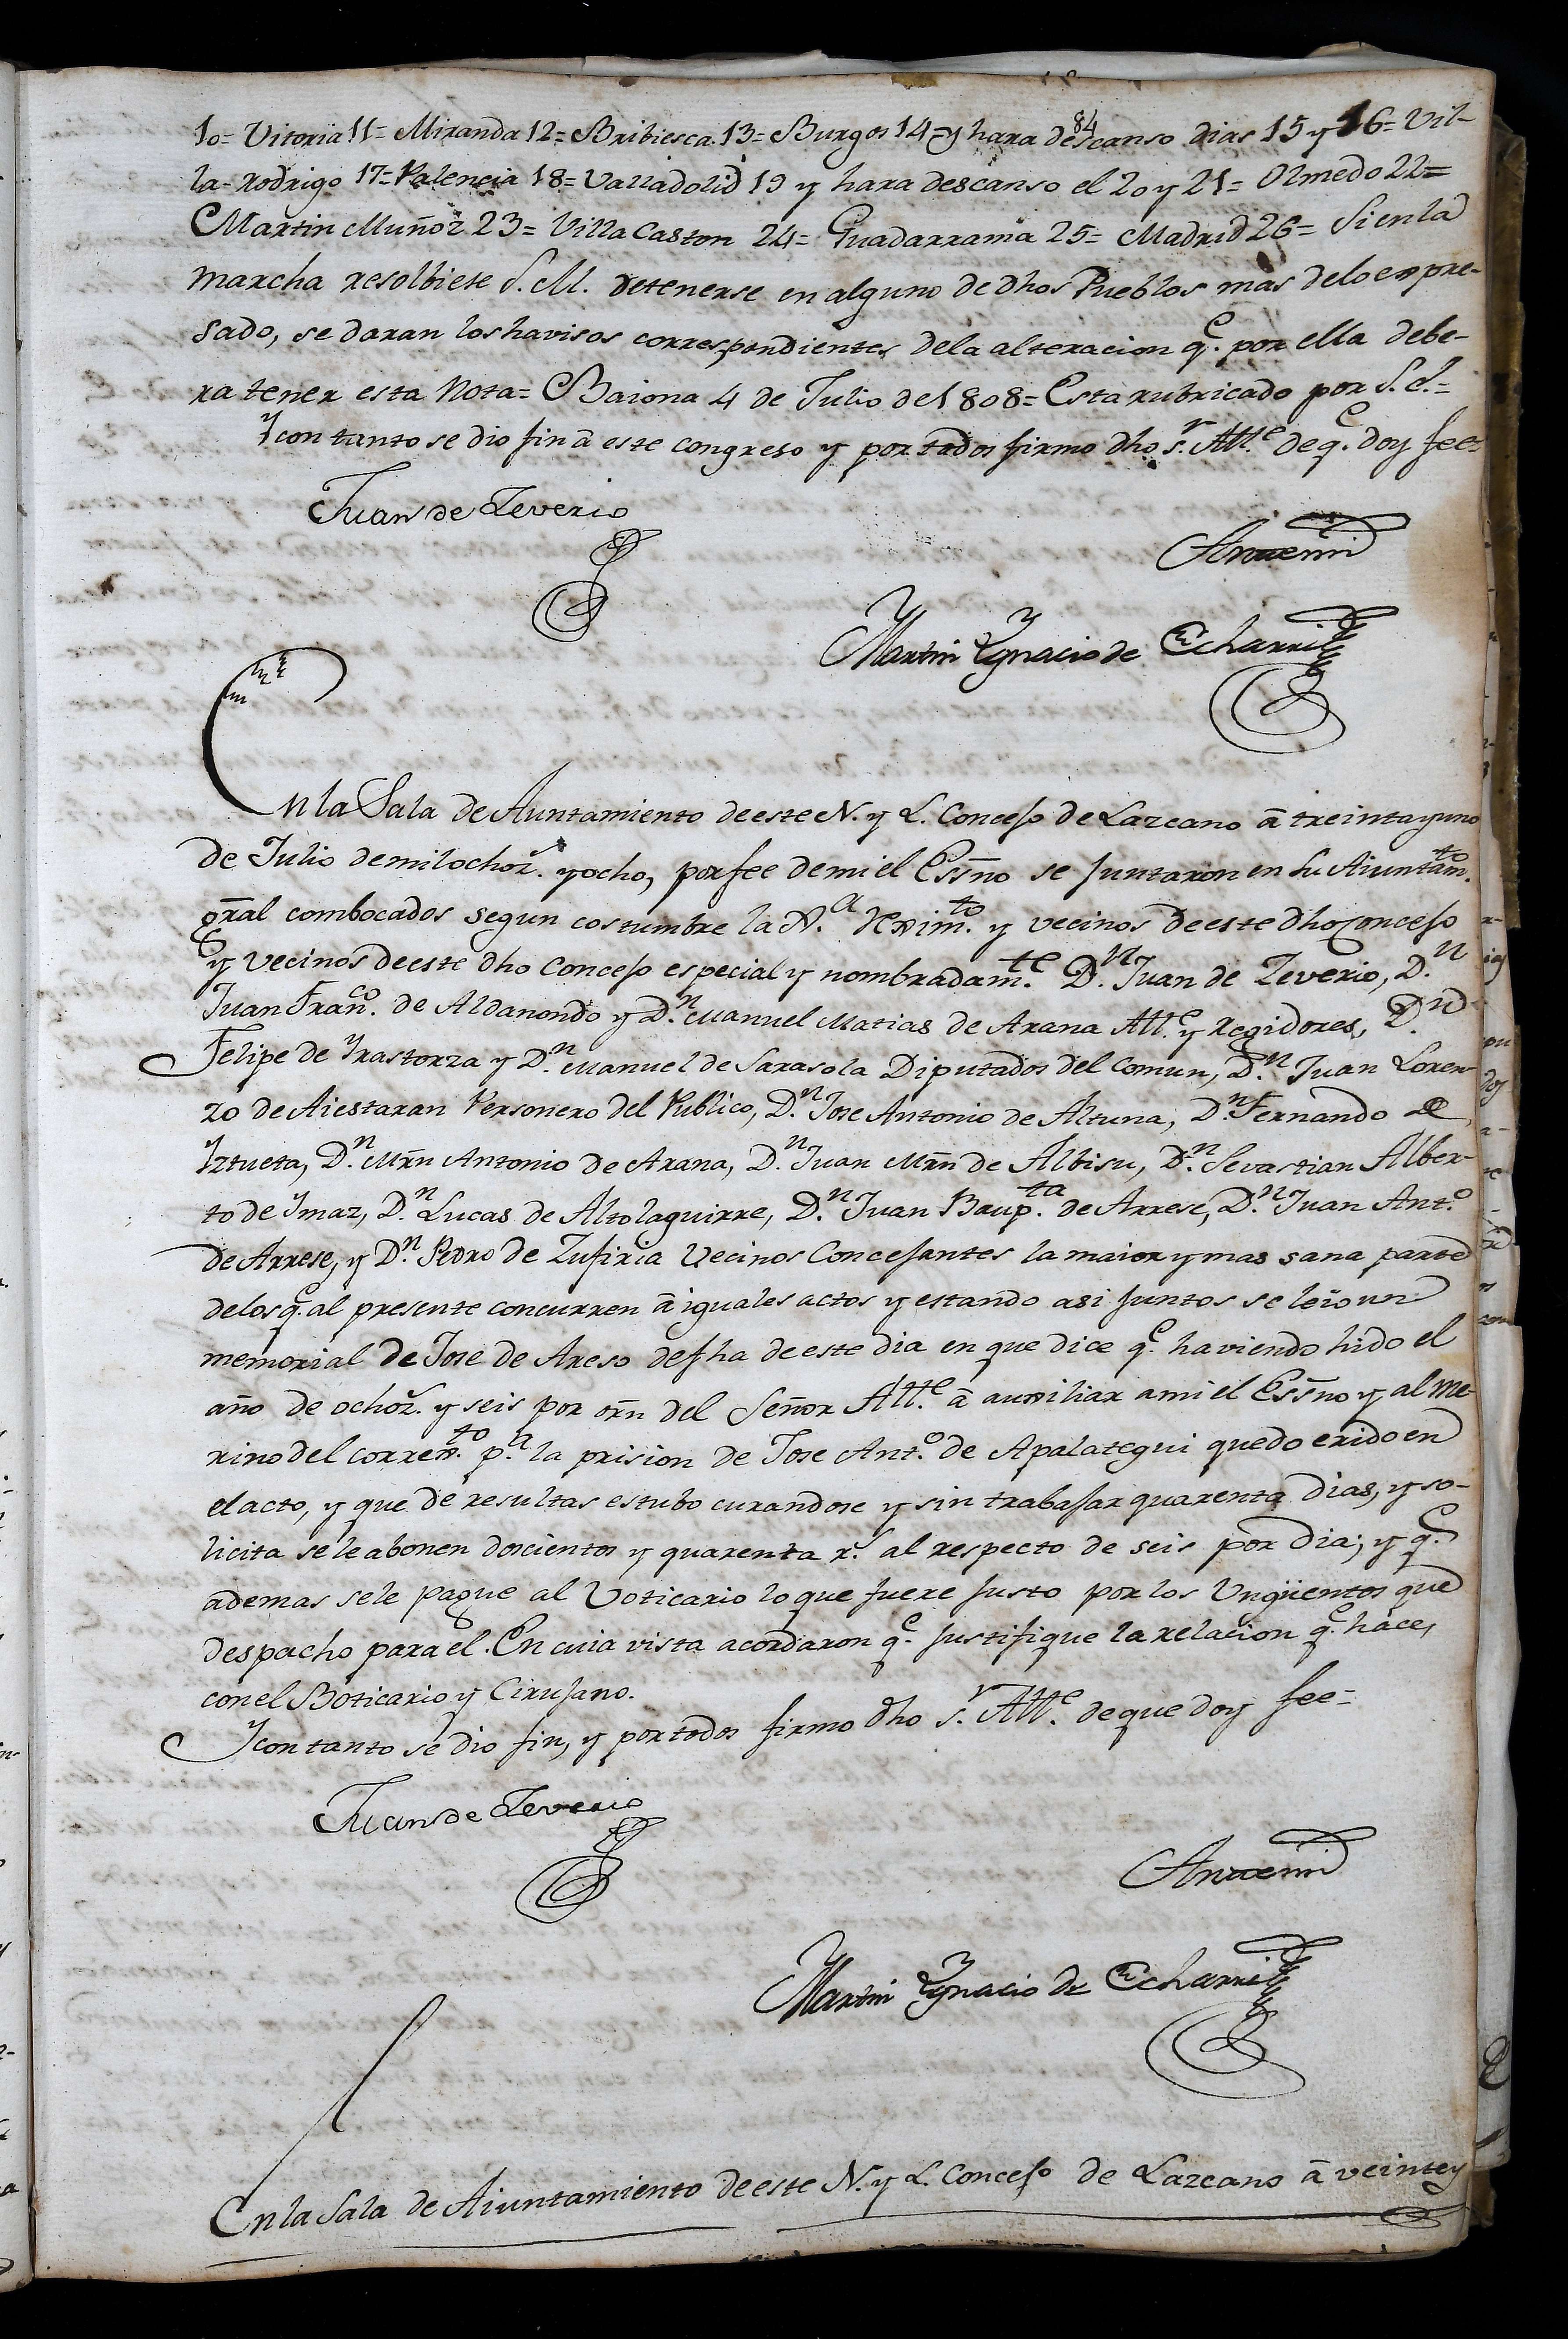 84
10= Vitoria 11= Miranda 12= Bribiesca 13= Burgos 14= y hara descanso dias 15 y 16= Vil-
la-Rodrigo 17= Palencia 18= Valladolid 19 y hara descanso el 20 y 21= Olmedo 22=
Martin Muñoz 23= Villa Caston 24= Guadarrama 25= Madrid 26= Si en la
marcha resolbiese S. M. detenerse en alguno de dhos Pueblos mas de lo expre-
sado, se daran los havisos correspondientes de la alteracion q.e por ella debe-
ra tener esta Nota= Baiona 4 de Julio de 1808= Està rubricado por S. E.=
Y con tanto se dio fin â este congreso y por todos firmo dho s.r Alt.e de q.e doy fee=
Juan de Zeverio
Antemi
Martin Ygnacio de Echarri
En la Sala de Auntamiento de este N. y L. Concejo de Lazcano â treinta y uno
de Julio de mil ochoz.s y ocho, por fee de mi el Essno se juntaron en su Aiuntam.to
gral combocados segun costumbre la N.a Rexim.to y vecinos de este dho Concejo
y vecinos de este dho Concejo especial y nombradam.te D.n Juan de Zeverio, D.n
Juan Fran.co de Aldanondo y D.n Manuel Matias de Arana Alt.e y Regidores, D.n
Felipe de Yrastorza y D.n Manuel de Sarasola Diputados del Comun, D.n Juan Loren-
zo de Aiestaran Personero del Publico, D.n Jose Antonio de Altuna, D.n Fernando de
Yztueta, D.n Mrn Antonio de Arana, D.n Juan Mrn de Albisu, D.n Sevastian Alber-
to de Ymaz, D.n Lucas de Altolaguirre, D.n Juan Baup.ta de Arrese, D.n Juan Ant.o
de Arrese, y D.n Pedro de Zufiria Vecinos Concejantes la maior y mas sana parte
de los q.e al presente concurren â iguales actos y estando asi juntos se leio un
memorial de Jose de Areso de fha de este dia en que dice q.e haviendo hido el
año de ochoz.s y seis por orn del Señor Alt.e â auxiliar a mi el Essno y al Me-
rino del corren.to p.a la prision de Jose Ant.o de Apalategui quedo erido en
el acto, y que de resultas estubo curandose y sin trabajar quarenta dias, y so-
licita se le abonen doscientos y quarenta r.s al respecto de seis por dia; y q.e
ademas se le pague al Voticario lo que fuere justo por los Ungüentos que
despacho para el. En cuia vista acordaron q.e justifique la relacion q.e hace,
con el Boticario y Cirujano.
Y con tanto se dio fin, y por todos firmo dho s.r Alt.e de que doy fee=
Juan de Zeverio
Antemi
Martin Ygnacio de Echarri
En la Sala de Aiuntamiento de este N. y L. Concejo de Lazcano â veinte y